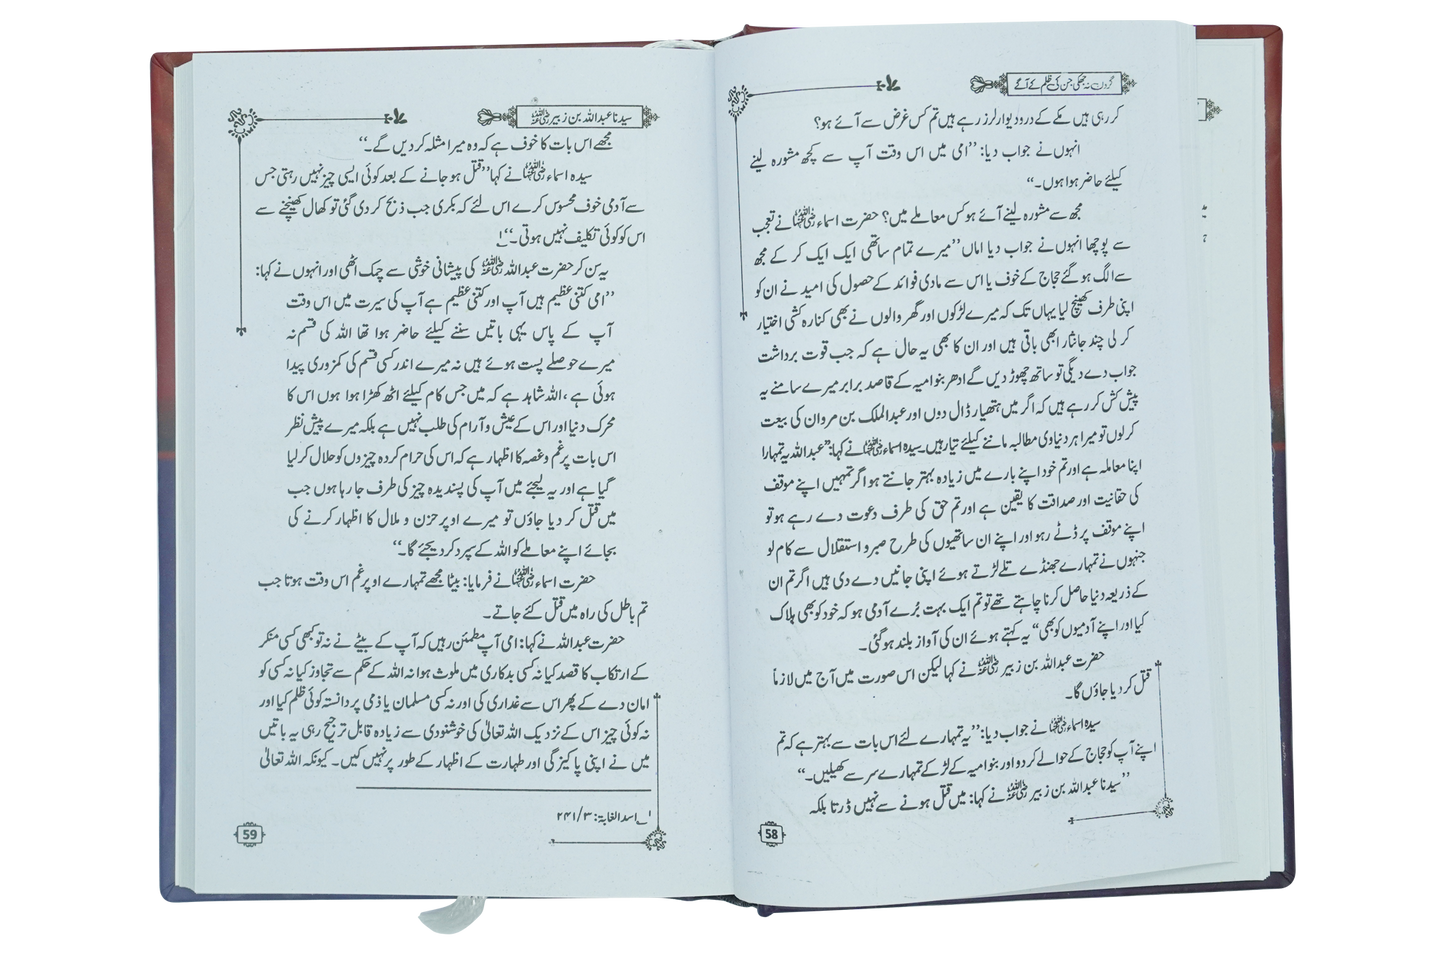 گردن نہ جھکی جن کی ظلم کے آگے
کر رہی ہیں مکے کے در و دیوار لرز رہے ہیں تم کس غرض سے آئے ہو؟
انہوں نے جواب دیا: ’’امی میں اس وقت آپ سے کچھ مشورہ لینے
کیلئے حاضر ہوا ہوں۔‘‘
مجھ سے مشورہ لینے آئے ہو کس معاملے میں؟ حضرت اسماء رضی اللہ عنہا نے تعجب
سے پوچھا انہوں نے جواب دیا اماں ’’میرے تمام ساتھی ایک ایک کر کے مجھ
سے الگ ہو گئے حجاج کے خوف یا اس سے مادی فوائد کے حصول کی امید نے ان کو
اپنی طرف کھینچ لیا یہاں تک کہ میرے لڑکوں اور گھر والوں نے بھی کنارہ کشی اختیار
کر لی چند جانثار ابھی باقی ہیں اور ان کا بھی یہ حال ہے کہ جب قوت برداشت
جواب دے دیگی تو ساتھ چھوڑ دیں گے ادھر بنو امیہ کے قاصد برابر میرے سامنے یہ
پیش کش کر رہے ہیں کہ اگر میں ہتھیار ڈال دوں اور عبدالملک بن مروان کی بیعت
کر لوں تو میرا ہر دنیاوی مطالبہ ماننے کیلئے تیار ہیں۔ سیدہ اسماء رضی اللہ عنہا نے کہا: ’’عبداللہ یہ تمہارا
اپنا معاملہ ہے اور تم خود اپنے بارے میں زیادہ بہتر جانتے ہو اگر تمہیں اپنے موقف
کی حقانیت اور صداقت کا یقین ہے اور تم حق کی طرف دعوت دے رہے ہو تو
اپنے موقف پر ڈٹے رہو اور اپنے ان ساتھیوں کی طرح صبر و استقلال سے کام لو
جنہوں نے تمہارے جھنڈے تلے لڑتے ہوئے اپنی جانیں دے دی ہیں اگر تم ان
کے ذریعہ دنیا حاصل کرنا چاہتے تھے تو تم ایک بہت بُرے آدمی ہو کہ خود کو بھی ہلاک
کیا اور اپنے آدمیوں کو بھی‘‘ یہ کہتے ہوئے ان کی آواز بلند ہو گئی۔
حضرت عبداللہ بن زبیر رضی اللہ عنہ نے کہا لیکن اس صورت میں آج میں لازماً
قتل کر دیا جاؤں گا۔
سیدہ اسماء رضی اللہ عنہا نے جواب دیا: ’’یہ تمہارے لئے اس بات سے بہتر ہے کہ تم
اپنے آپ کو حجاج کے حوالے کر دو اور بنو امیہ کے لڑکے تمہارے سر سے کھیلیں۔‘‘
’’سیدنا عبداللہ بن زبیر رضی اللہ عنہ نے کہا: میں قتل ہونے سے نہیں ڈرتا بلکہ
58
سیدنا عبداللہ بن زبیر رضی اللہ عنہ
مجھے اس بات کا خوف ہے کہ وہ میرا مثلہ کر دیں گے۔‘‘
سیدہ اسماء رضی اللہ عنہا نے کہا ’’قتل ہو جانے کے بعد کوئی ایسی چیز نہیں رہتی جس
سے آدمی خوف محسوس کرے اس لئے کہ بکری جب ذبح کر دی گئی تو کھال کھینچنے سے
اس کو کوئی تکلیف نہیں ہوتی۔‘‘۱
یہ سن کر حضرت عبداللہ رضی اللہ عنہ کی پیشانی خوشی سے چمک اٹھی اور انہوں نے کہا:
’’امی کتنی عظیم ہیں آپ اور کتنی عظیم ہے آپ کی سیرت میں اس وقت
آپ کے پاس یہی باتیں سننے کیلئے حاضر ہوا تھا اللہ کی قسم نہ
میرے حوصلے پست ہوئے ہیں نہ میرے اندر کسی قسم کی کمزوری پیدا
ہوئی ہے، اللہ شاہد ہے کہ میں جس کام کیلئے اٹھ کھڑا ہوا ہوں اس کا
محرک دنیا اور اس کے عیش و آرام کی طلب نہیں ہے بلکہ میرے پیش نظر
اس بات پر غم و غصہ کا اظہار ہے کہ اس کی حرام کردہ چیزوں کو حلال کر لیا
گیا ہے اور یہ لیجئے میں آپ کی پسندیدہ چیز کی طرف جا رہا ہوں جب
میں قتل کر دیا جاؤں تو میرے اوپر حزن و ملال کا اظہار کرنے کی
بجائے اپنے معاملے کو اللہ کے سپرد کر دیجئے گا۔‘‘
حضرت اسماء رضی اللہ عنہا نے فرمایا: بیٹا مجھے تمہارے اوپر غم اس وقت ہوتا جب
تم باطل کی راہ میں قتل کئے جاتے۔
حضرت عبداللہ نے کہا: امی آپ مطمئن رہیں کہ آپ کے بیٹے نے نہ تو کبھی کسی منکر
کے ارتکاب کا قصد کیا نہ کسی بدکاری میں ملوث ہوا نہ اللہ کے حکم سے تجاوز کیا نہ کسی کو
امان دے کے پھر اس سے غداری کی اور نہ کسی مسلمان یا ذمی پر دانستہ کوئی ظلم کیا اور
نہ کوئی چیز اس کے نزدیک اللہ تعالیٰ کی خوشنودی سے زیادہ قابل ترجیح رہی یہ باتیں
میں نے اپنی پاکیزگی اور طہارت کے اظہار کے طور پر نہیں کیں۔ کیونکہ اللہ تعالیٰ
۱ اسد الغابۃ: ۳/۲۴۱
59